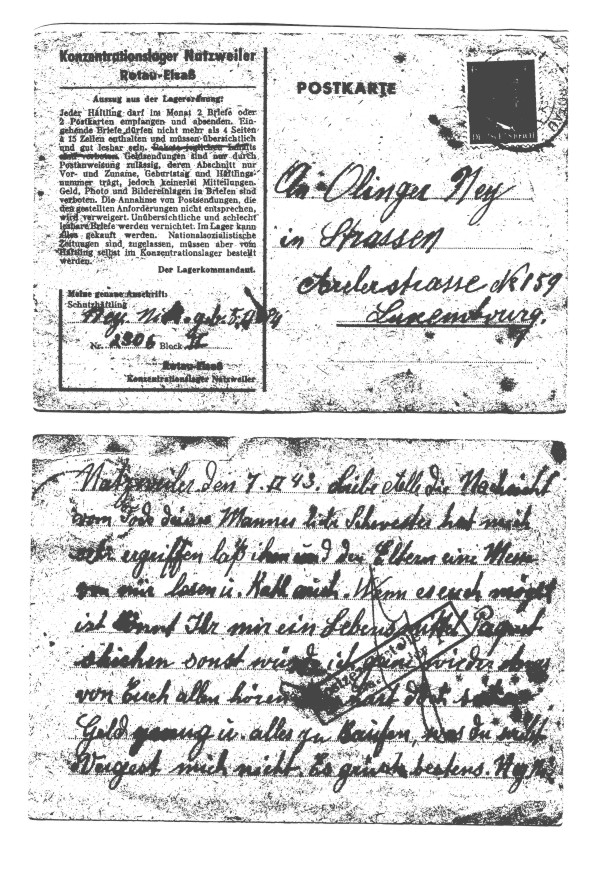 Konzentrationslager Natzweiler
Rotau-Elsaß
Auszug aus der Lagerordnung:
Jeder Häftling darf im Monat 2 Briefe oder
2 Postkarten empfangen und absenden. Ein-
gehende Briefe dürfen nicht mehr als 4 Seiten
à 15 Zeilen enthalten und müssen übersichtlich
und gut lesbar sein. Pakete jeglichen Inhalts
sind verboten. Geldsendungen sind nur durch
Postanweisung zulässig, deren Abschnitt nur
Vor- und Zuname, Geburtstag und Häftlings-
nummer trägt, jedoch keinerlei Mitteilungen.
Geld, Photo und Bildereinlagen in Briefen sind
verboten. Die Annahme von Postsendungen, die
den gestellten Anforderungen nicht entsprechen,
wird verweigert. Unübersichtliche und schlecht
lesbare Briefe werden vernichtet. Im Lager kann
alles gekauft werden. Nationalsozialistische
Zeitungen sind zugelassen, müssen aber vom
Häftling selbst im Konzentrationslager bestellt
werden.
Der Lagerkommandant.
Meine genaue Anschrift:
Schutzhäftling
Ney, geb.
Nr. 2306 Block II
Rotau-Elsaß
Konzentrationslager Natzweiler
POSTKARTE
An Olinger Ney
in Strassen
Arlerstrasse № 159
Luxembourg.
Natzweiler den 7. 43. Liebe die Nachricht
vom Tode deines Mannes Schwester hat mich
sehr ergriffen laß ihm und den Eltern eine Messe
von mir lesen u. Kath auch. Wenn es euch möglich
ist könnt Ihr mir ein Lebensmittel Paquet
schicken sonst würde ich gern wieder etwas
von Euch allen hören
Geld genug u. alles zu kaufen, was du
Vergest mich nicht. Es grüsst bestens. Ney